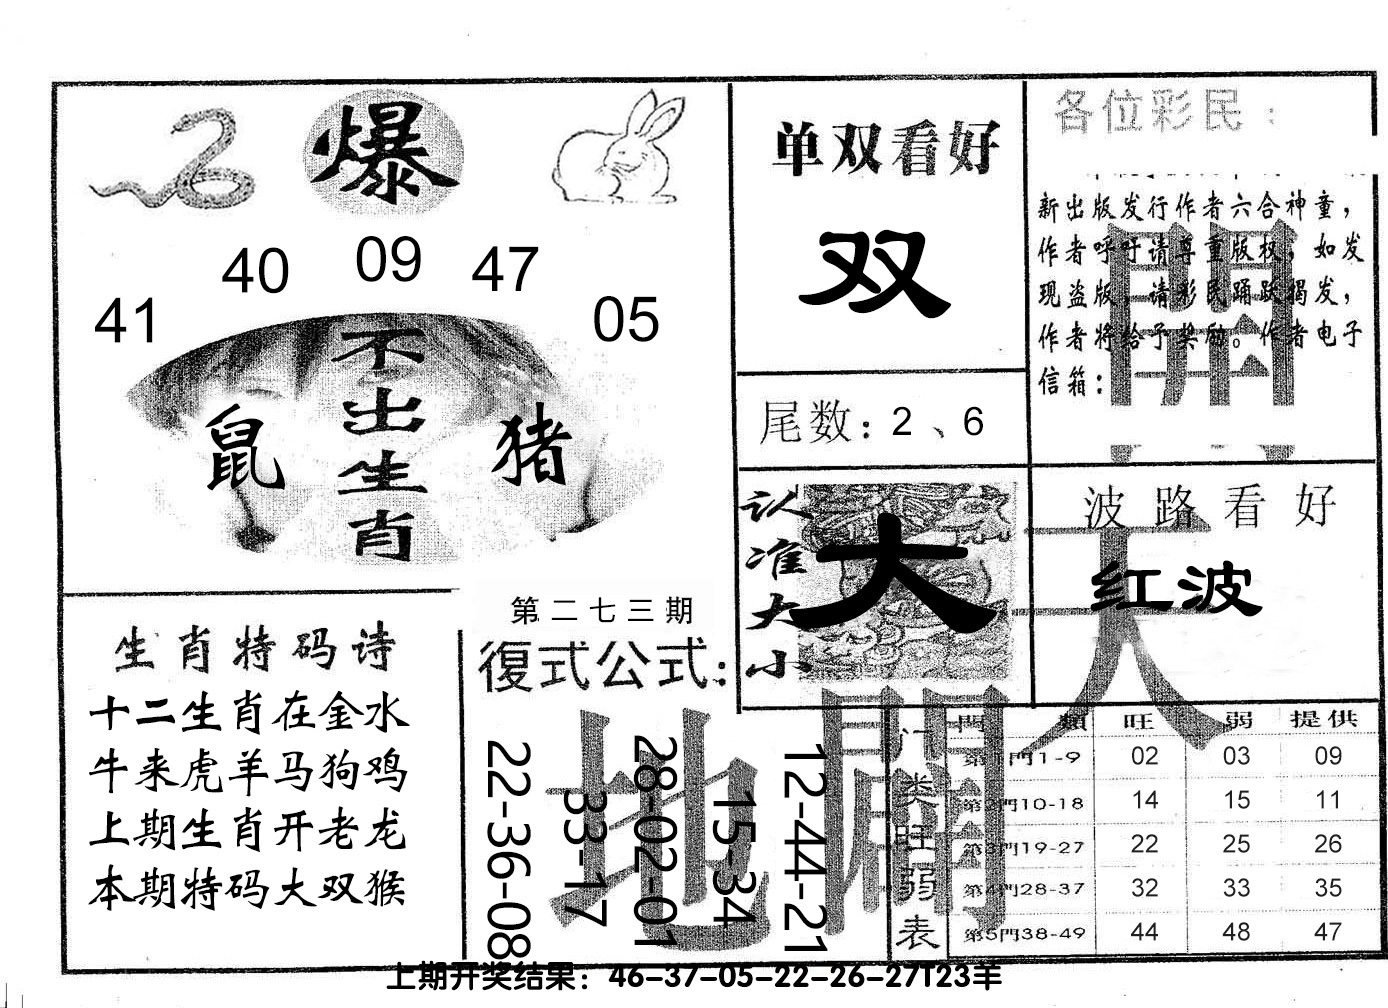 爆
41 40 09 47 05
不出生肖
鼠 猪
单双看好
双
尾数：2、6
各位彩民：
新出版发行作者六合神童，
作者呼吁请尊重版权，如发
现盗版，请彩民踊跃揭发，
作者将给予奖励。作者电子
信箱：
開
认准大小
大
波路看好
红波
天
生肖特码诗
十二生肖在金水
牛来虎羊马狗鸡
上期生肖开老龙
本期特码大双猴
第二七三期
復式公式：
22-36-08
33-17
28-02-01
15-34
12-44-21
地
闢
门类旺弱表
門類 旺 弱 提供
第1門1-9 02 03 09
第2門10-18 14 15 11
第3門19-27 22 25 26
第4門28-37 32 33 35
第5門38-49 44 48 47
上期开奖结果：46-37-05-22-26-27T23羊